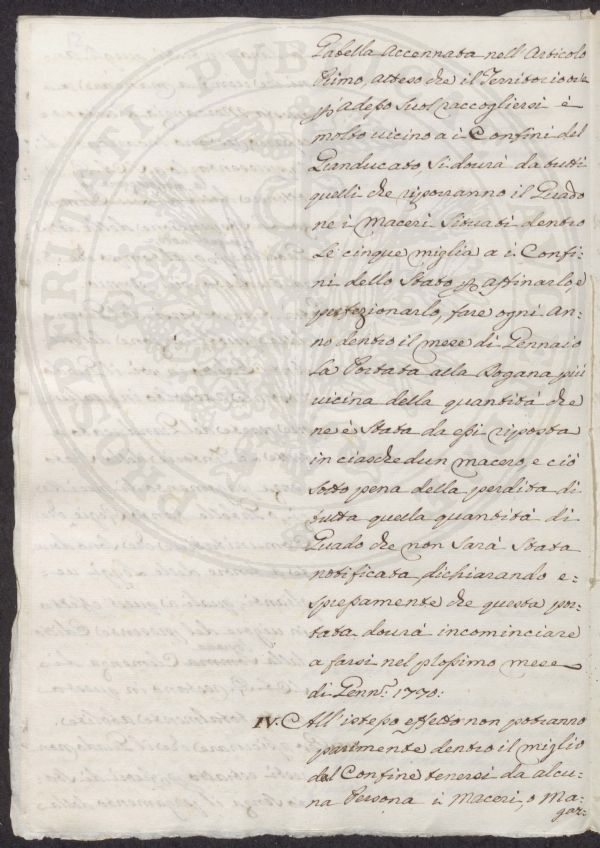 Gabella accennata nell'Articolo
Primo, atteso che il Territorio ove
p. adesso suol raccogliersi è
molto vicino a i Confini del
Granducato, si dovrà da tutti
quelli che riporranno il Guado
ne i Maceri situati dentro
le cinque miglia a i Confi:
ni dello Stato p. affinarlo, e
perfezionarlo, fare ogni An:
no dentro il mese di Gennaio
la Portata alla Dogana più
vicina della quantità che
ne è stata da essi riposta
in ciaschedun macero, e ciò
sotto pena della perdita di
tutta quella quantità di
Guado che non sarà stata
notificata, dichiarando e:
spressamente che questa por:
tata dovrà incominciare
a farsi nel prossimo mese
di Genn.º 1770:
IV. All'istesso effetto non potranno
parimente dentro il miglio
del Confine tenersi da alcu:
na Persona i Maceri, o Ma:
gaz:
PROSPERITATI PVB